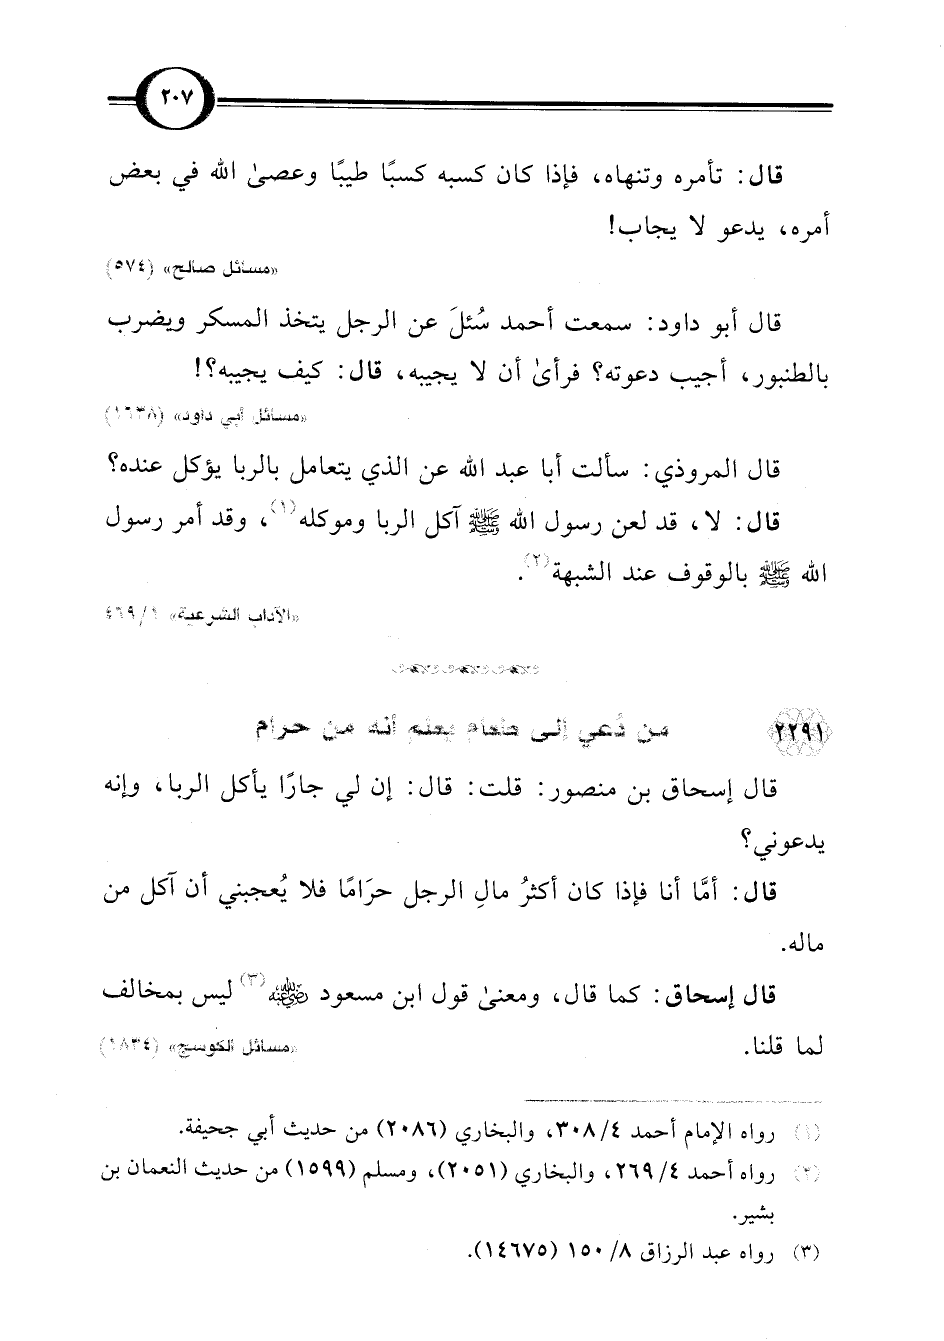 ٢٠٧
قال: تأمره وتنهاه، فإذا كان كسبه كسبًا طيبًا وعصىٰ الله في بعض
أمره، يدعو لا يجاب!
«مسائل صالح» (٥٧٤)
قال أبو داود: سمعت أحمد سُئلَ عن الرجل يتخذ المسكر ويضرب
بالطنبور، أجيب دعوته؟ فرأىٰ أن لا يجيبه، قال: كيف يجيبه؟!
«مسائل أبي داود» (١٦٣٨)
قال المروذي: سألت أبا عبد الله عن الذي يتعامل بالربا يؤكل عنده؟
قال: لا، قد لعن رسول الله ﷺ آكل الربا وموكله(١)، وقد أمر رسول
الله ﷺ بالوقوف عند الشبهة(٢).
«الآداب الشرعية» ١/ ٤٦٩
٢٢٩١ من دُعي إلى طعام يعلم أنه من حرام
قال إسحاق بن منصور: قلت: قال: إن لي جارًا يأكل الربا، وإنه
يدعوني؟
قال: أمَّا أنا فإذا كان أكثرُ مالِ الرجل حرَامًا فلا يُعجبني أن آكل من
ماله.
قال إسحاق: كما قال، ومعنىٰ قول ابن مسعود رضي الله عنه(٣) ليس بمخالف
لما قلنا.
«مسائل الكوسج» (١٨٣٤)
(١) رواه الإمام أحمد ٤/ ٣٠٨، والبخاري (٢٠٨٦) من حديث أبي جحيفة.
(٢) رواه أحمد ٤/ ٢٦٩، والبخاري (٢٠٥١)، ومسلم (١٥٩٩) من حديث النعمان بن
بشير.
(٣) رواه عبد الرزاق ٨/ ١٥٠ (١٤٦٧٥).